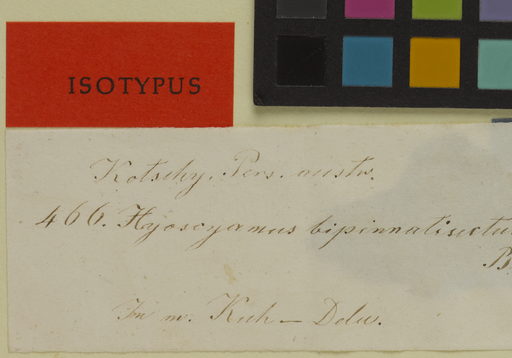 ISOTYPUS
Kotschy. Pers. austr.
466. Hyoscyamus bipinnatisectu
B
In m. Kuh-Delu.